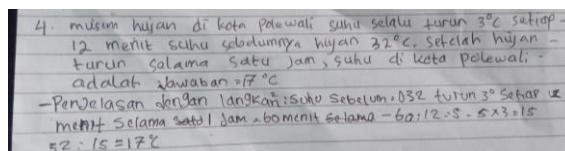 4. musim hujan di kota polewali suhu selalu turun 3°C setiap -
12 menit suhu sebelumnya hujan 32°C, setelah hujan -
turun selama satu jam, suhu di kota polewali -
adalah Jawaban = 17 °C
- Penjelasan dengan langkah²: Suhu sebelum . 032 turun 3° setiap 12
menit selama satu 1 jam = 60 menit selama - 60 : 12 = 5 - 5 x 3 = 15
52 : 15 = 17°C